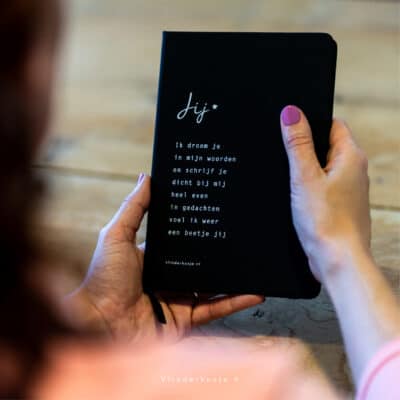 Jij*
Ik droom je
in mijn woorden
om schrijf je
dicht bij mij
heel even
in gedachten
voel ik weer
een beetje jij
vlinderkusje.nl